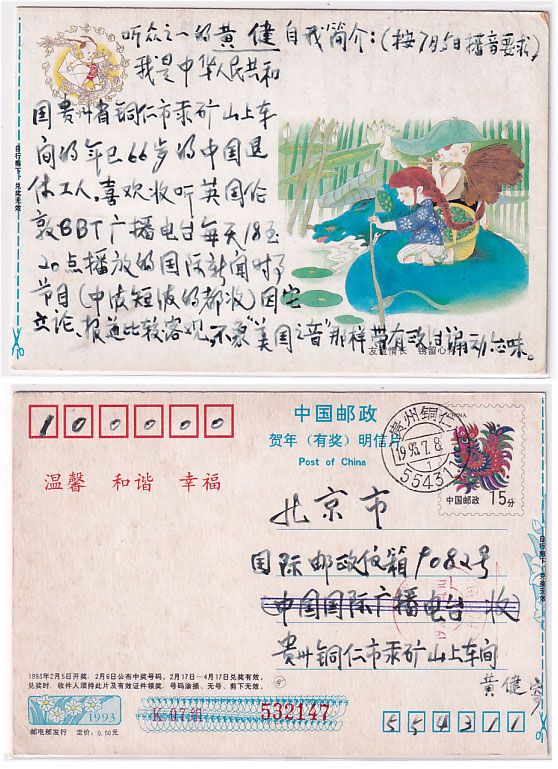 听众之一的黄健自我简介:(按7月5日播音要求)
我是中华人民共和
国贵州省铜仁市汞矿山上车
间的年已66岁的中国退
休工人,喜欢收听英国伦
敦BBT广播电台每天18至
20点播放的国际新闻时事
节目(中波短波的都收)因它
立论、报道比较客观,不象"美国之音"那样带有政治煽动意味。
友谊情长
自行剪下 兑奖无效
100000
中国邮政
贺年(有奖)明信片
Post of China
温馨 和谐 幸福
贵州铜仁
1993.7.8
1
55431
CHINA
中国邮政 15分
北京市
国际邮政信箱9082号
中国国际广播电台 收
贵州铜仁市汞矿山上车间
黄健
自行剪下 兑奖无效
1993年2月5日开奖,2月6日公布中奖号码,2月17日—4月17日兑奖有效。
兑奖时,收件人须持此片及有效证件领奖,号码涂损、无号、剪下无效。
1993
邮电部发行 定价:0.50元
K 07组 532147
554311